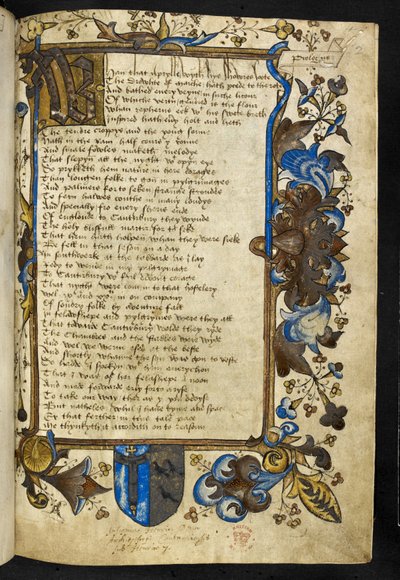 Prologus
Whan that Aprylle wyth hys showres soote
The drowhte of marche hath perced to the rote
And bathed every veyne in suche licour
Of whiche vertu engendred is the flour
Whan zepherus eek wt his swete breth
Enspired hath every holt and heth
The tendre croppys and the yong sonne
Hath in the Ram half cours y ronne
And smale fowles maketh melodye
That slepyn all the nyght wt opyn eye
So prykketh hem nature in here corages
Than longen folke to gon in pylgrimages
And palmers for to seken straunge strondes
To fern halwes couthe in many londys
And specially fro every shires ende
Of englonde to Cauntirbury they wende
The holy blissfull martir for to seke
That hem hath holpen whan they were seeke
Be fell in that seson on a day
In Southwerk at the tabbard as I lay
Redy to wende in my pylgrimage
To Cauntirbury wt full devout corage
That nyght were come in to that hostelery
Wel ix and xx in on company
Of sondry folk by aventure fall
In felawshepe and pylgrymes were they all
That toward Cauntirbury wolde they ryde
The Chambres and the stables were wyde
And wel we were esed at the beste
And shortly whanne the son was gon to reste
So hadde I spokyn wt hem everychon
That I was of her felaschepe a noon
And made forward erly for to ryse
To take our way ther as y you devyse
But natheles whil I have tyme and space
Er that ferther in this tale pace
Me thynkyth it accordith on to reason